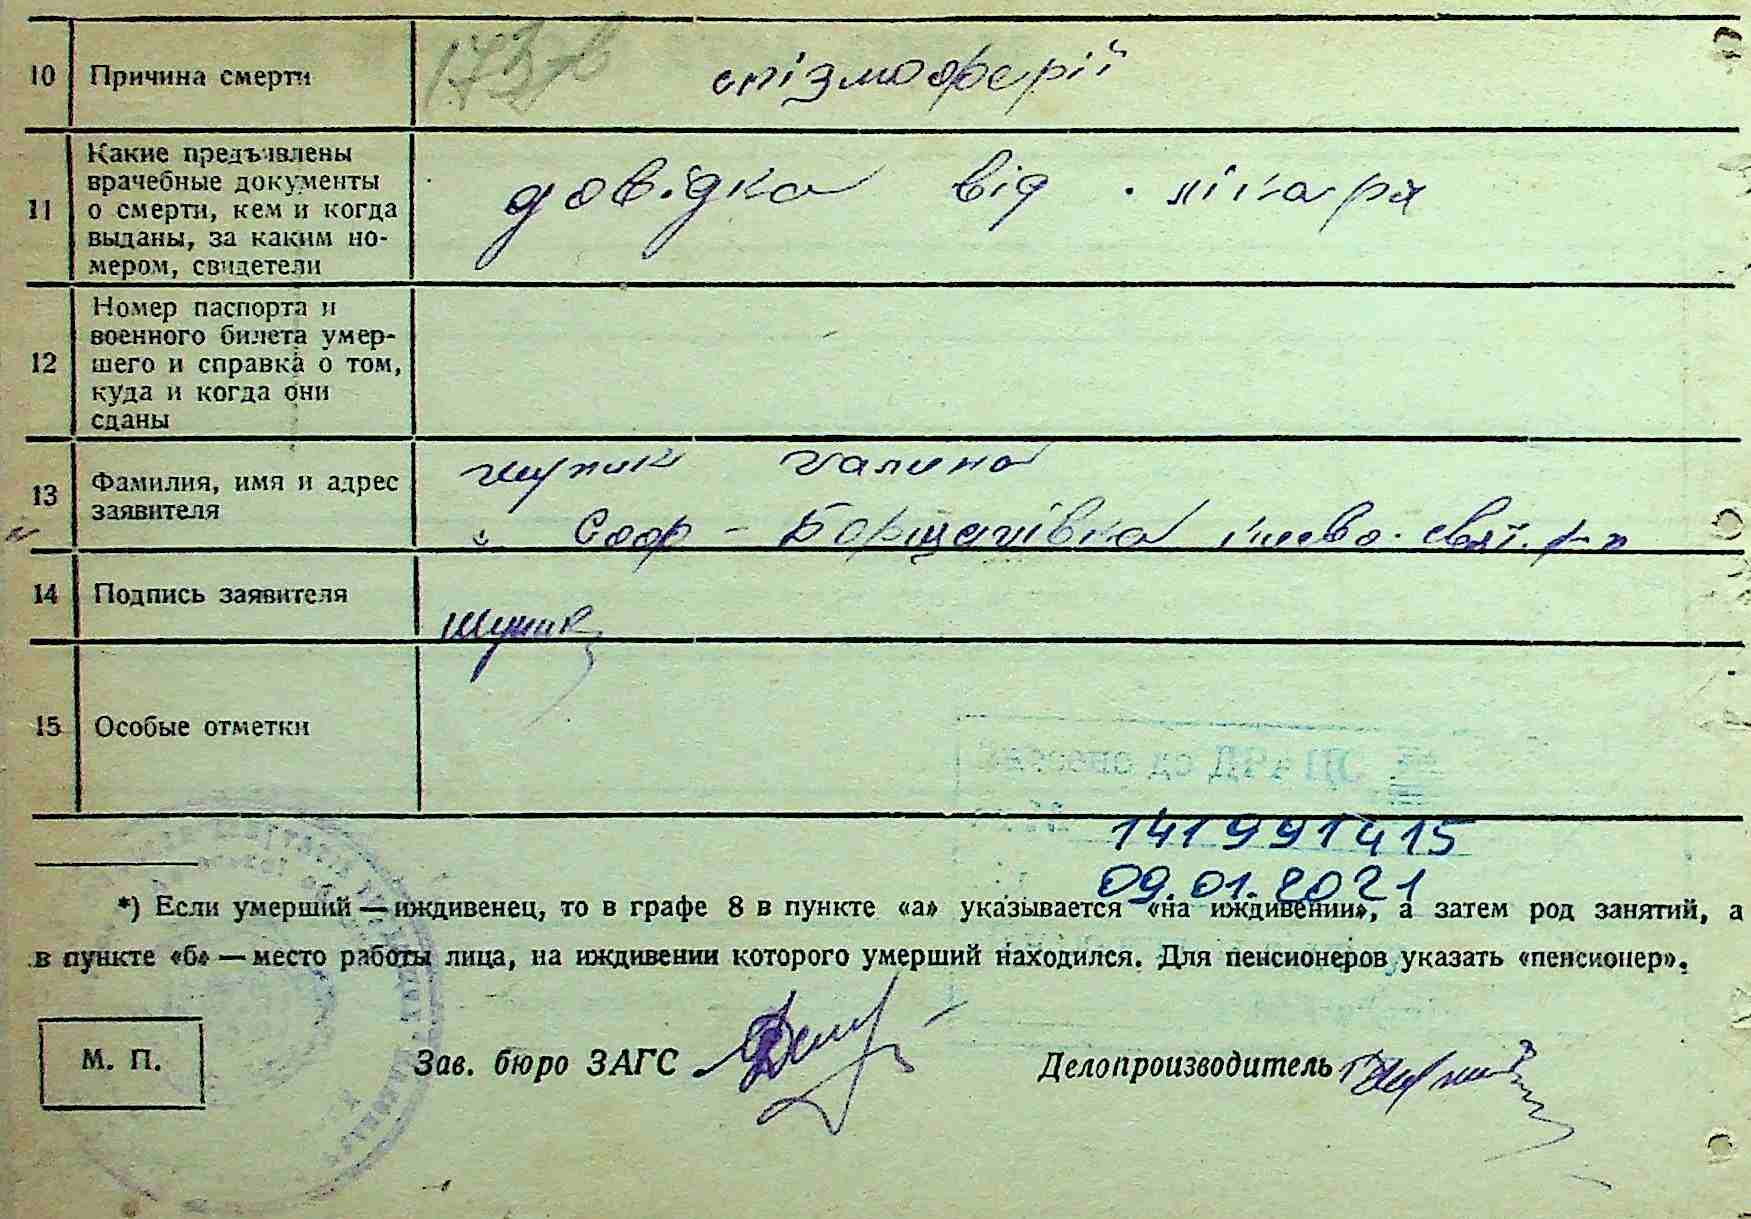 10 Причина смерти спізмоферії
11 Какие предъявлены
врачебные документы
о смерти, кем и когда
выданы, за каким но-
мером, свидетели
довідка від лікаря
12 Номер паспорта и
военного билета умер-
шего и справка о том,
куда и когда они
сданы
13 Фамилия, имя и адрес
заявителя
Галина
Соф - Борщагівка р-н
14 Подпись заявителя
15 Особые отметки
141991415
09.01.2021
*) Если умерший — иждивенец, то в графе 8 в пункте «а» указывается «на иждивении», а затем род занятий, а
в пункте «б» — место работы лица, на иждивении которого умерший находился. Для пенсионеров указать «пенсионер».
М. П. Зав. бюро ЗАГС Делопроизводитель